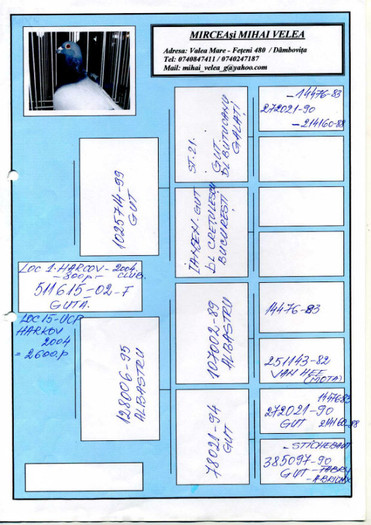 MIRCEAși MIHAI VELEA
Adresa: Valea Mare - Fețeni 480 / Dâmbovița
Tel: 0740847411 / 0740247187
Mail: mihai_velea_g@yahoo.com
LOC 1-HARCOV-2004
-800p- CLUB.
511615-02-F
GUTA.
LOC 15-UCP
HARKOV
2004
= 2600p
1025714-99
GUT
128006-95
ALBASTRU
ST-21.
GUT
DL BUTUCANU
GALAȚI
IANSEN-GUT
DL CREȚULESCU
BUCUREȘTI
107002-89
ALBASTRU
78021-94
GUT
-14476-83
272021-90
-214160-88
14476-83
251143-82
VAN HEE
(MOTA)
14476-83
272021-90
GUT 214160-88
-STICHELBAUT
385097-90
GUT